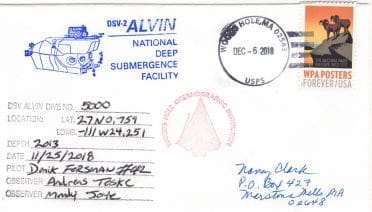 DSV-2 ALVIN
NATIONAL
DEEP
SUBMERGENCE
FACILITY
WOODS HOLE, MA 02543
DEC - 6 2018
USPS
WPA POSTERS
FOREVER/USA
WOODS HOLE OCEANOGRAPHIC INSTITUTION
1930
DSV ALVIN DIVE NO. 5000
LOCATION: LAT. 27N0.759
LONG. -111W24.251
DEPTH 2013
DATE 11/25/2018
PILOT Danik FORSMAN #42
OBSERVER Andreas Teske
OBSERVER Mandy Joye
Nancy Clark
P.O. Box 427
Marstons Mills MA
02648